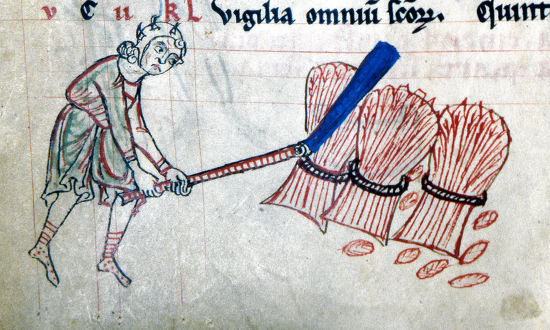 v C ii kl Vigilia omniū scōꝝ. Quint